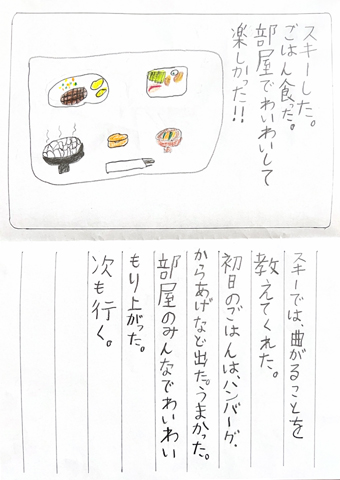 スキーした。
ごはん食った。
部屋でわいわいして
楽しかった!!
スキーでは、曲がることを
教えてくれた。
初日のごはんは、ハンバーグ、
からあげなど出た。うまかった。
部屋のみんなでわいわい
もり上がった。
次も行く。